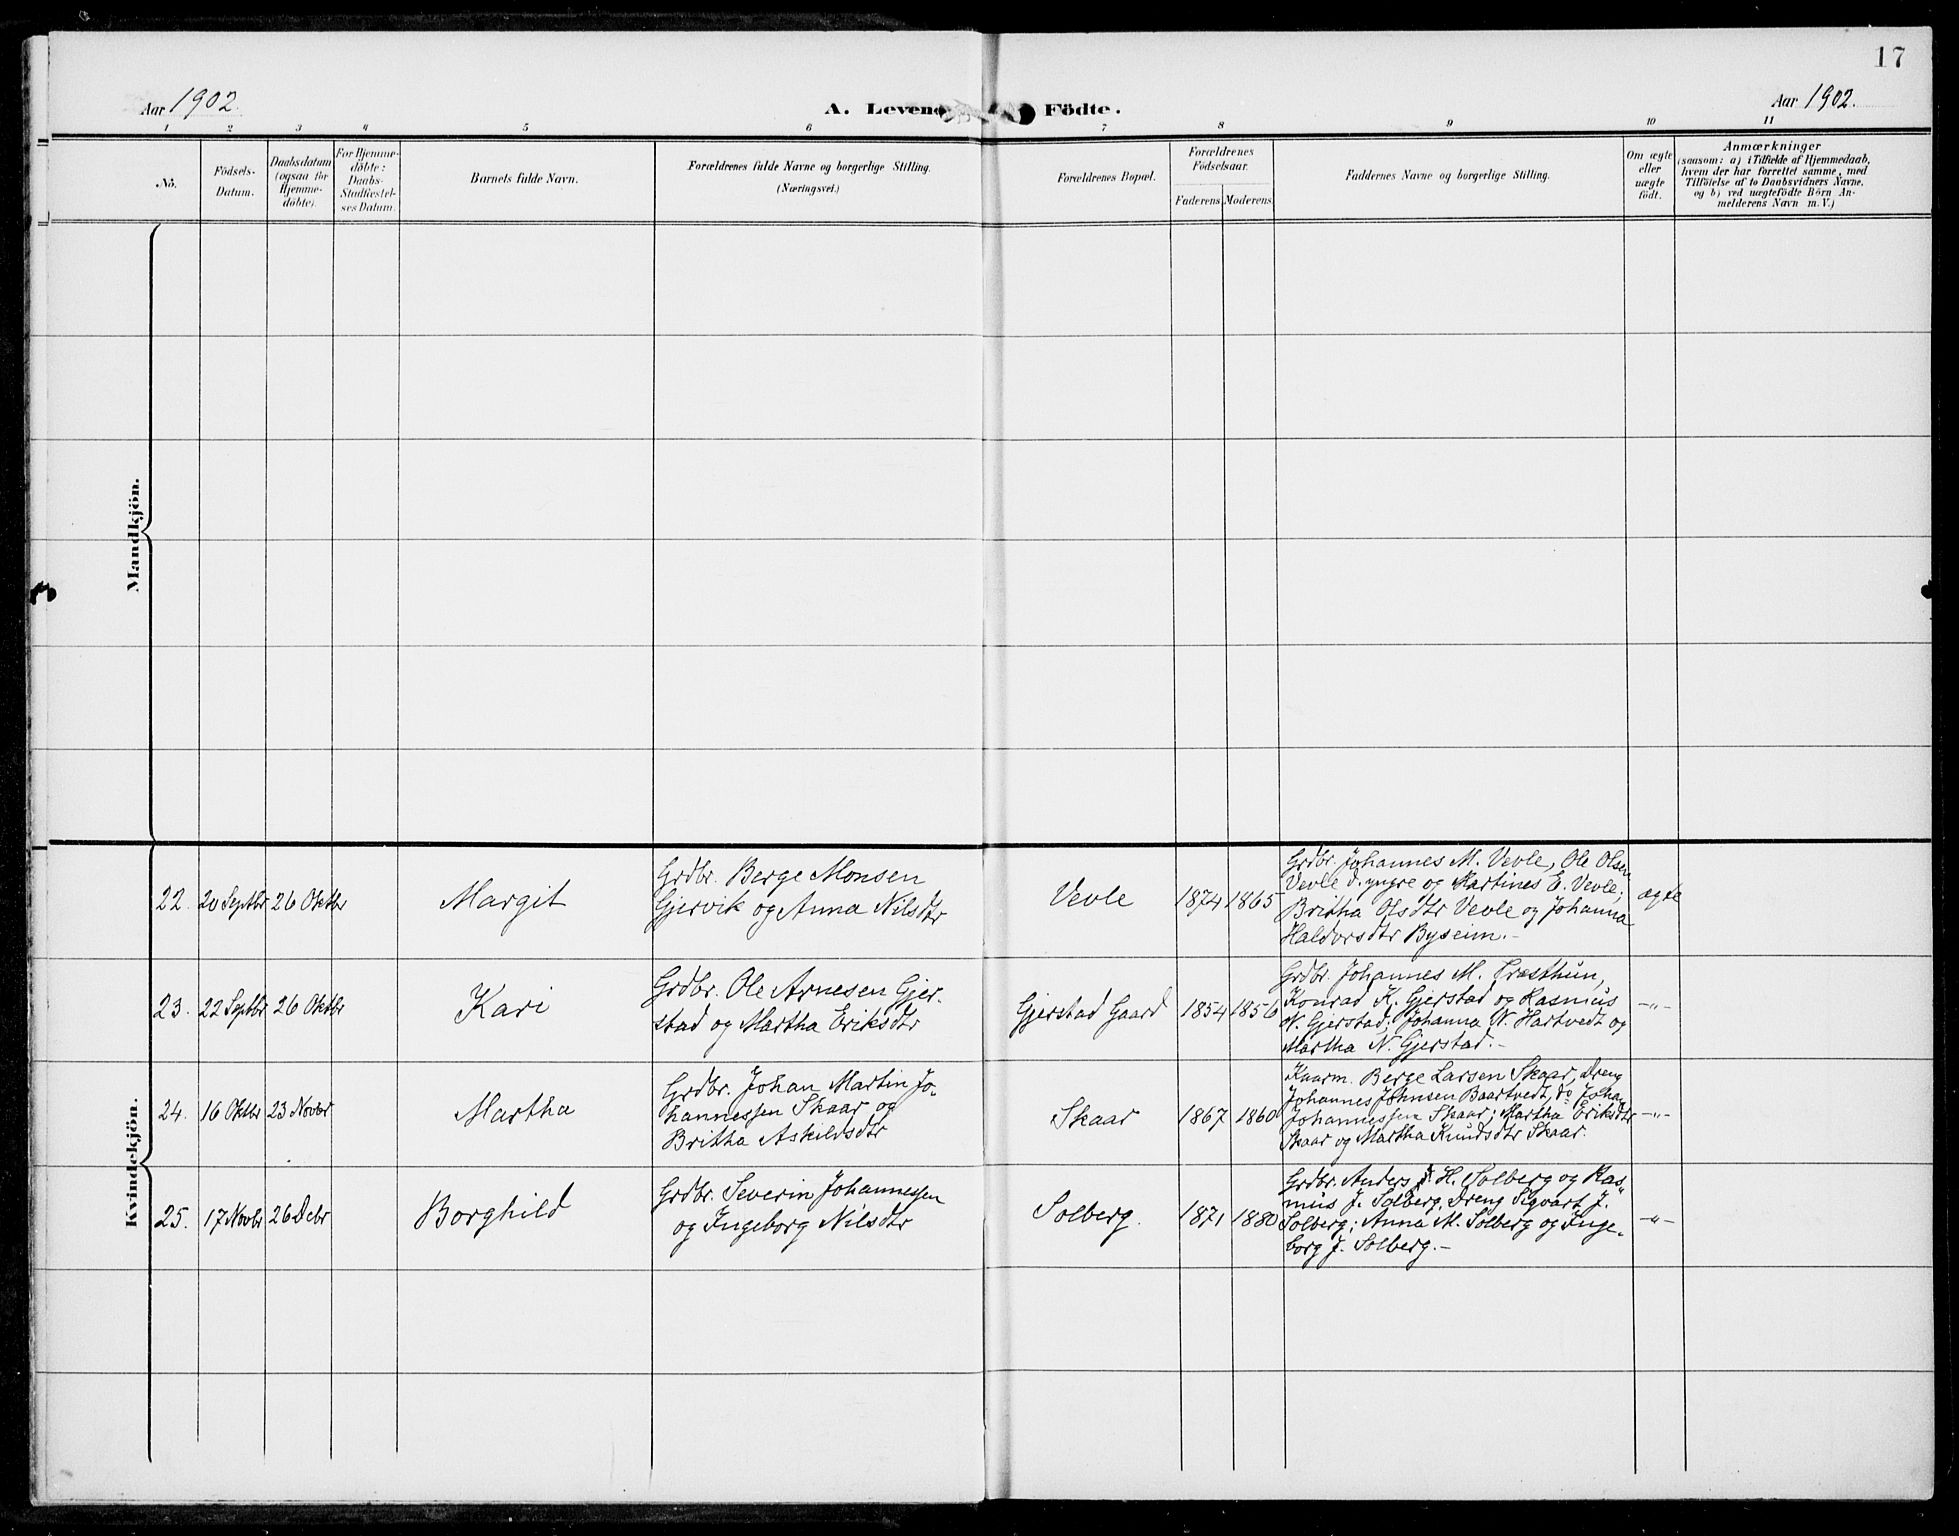 17
Aar 1902.
A. Levende Födte.
Aar 1902.
1 2 3 4 5 6 7 8 9 10 11
No.
Födsels-
Datum.
Daabsdatum
(ogsaa for
Hjemme-
döbte).
For Hjemme-
döbte:
Daabs-
Stadfæstel-
ses Datum.
Barnets fulde Navn.
Forældrenes fulde Navne og borgerlige Stilling.
(Næringsvei.)
Forældrenes Bopæl.
Forældrenes
Födselsaar.
Faderens Moderens
Faddernes Navne og borgerlige Stilling.
Om ægte
eller
uægte
födt.
Anmærkninger
(saasom: a) i Tilfælde af Hjemmedaab,
hvem der har forrettet samme, med
Tilföielse af to Daabsvidners Navne,
og b) ved uægtefödte Börn An-
melderens Navn m. V.)
Mandkjön.
Kvindekjön.
22. 20 Septbr 26 Oktbr
Margit
Grdbr. Berge Monsen
Gjervik og Anna Nilsdtr
Vevle
1874 1865
Grdbr. Johannes M. Vevle, Ole Olsen
Vevle d. yngre og Martines E. Vevle;
Britha Olsdtr Vevle og Johanna
Haldorsdtr Byseim.-
ægte
23. 22 Septbr 26 Oktbr
Kari
Grdbr. Ole Arnesen Gjer-
stad og Martha Eriksdtr
Gjerstad Gaard
1854 1856
Grdbr. Johannes M. Træsthun,
Konrad K. Gjerstad og Rasmus
N. Gjerstad; Johanna N. Hartvedt og
Martha N. Gjerstad.-
-"-
24. 16 Oktbr 23 Novbr
Martha
Grdbr. Johan Martin Jo-
hannessen Skaar og
Britha Askildsdtr
Skaar
1867 1860
Kaarm. Berge Larsen Skaar, Dreng
Johannes Johnsen Baartvedt, do Johan
Johannessen Skaar; Martha Eriksdtr
Skaar og Martha Knudsdtr Skaar.
-"-
25. 17 Novbr 26 Debr
Borghild
Grdbr. Severin Johannessen
og Ingeborg Nilsdtr
Solberg.
1871 1880
Grdbr. Anders H. Solberg og Ras-
mus J. Solberg, Dreng Sigvart J.
Solberg; Anna M. Solberg og Inge-
borg J. Solberg.-
-"-